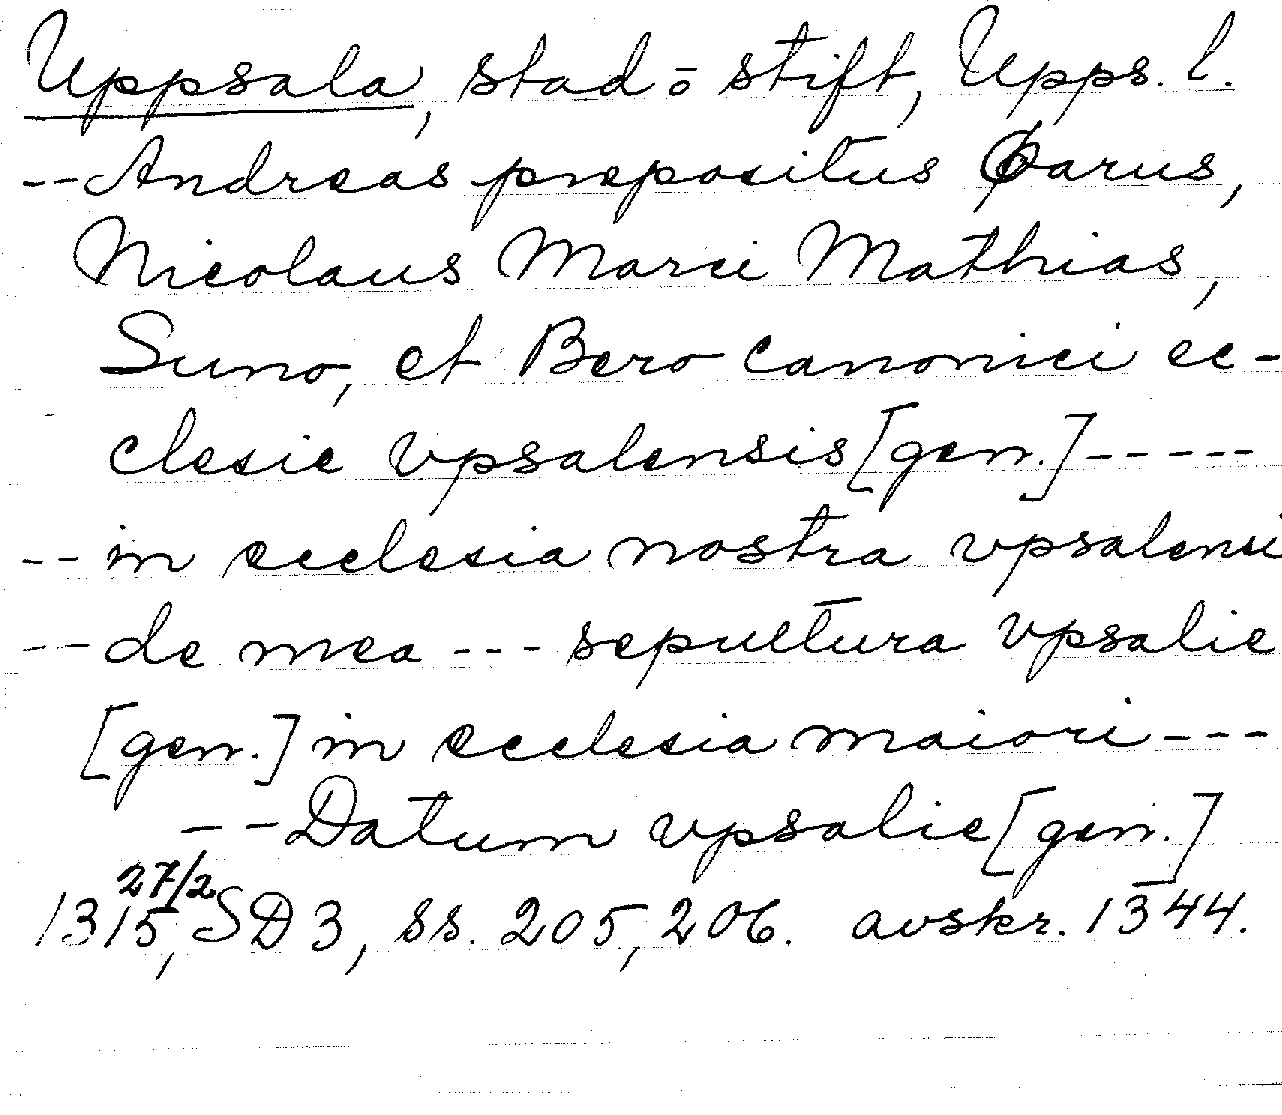 Uppsala, stad o stift, Upps. l.
-- Andreas prepositus Carus,
Nicolaus Marci Mathias,
Suno, et Bero canonici ec-
clesie vpsalensis [gen.] -----
-- in ecclesia nostra vpsalensi
-- de mea --- sepultura vpsalie
[gen.] in ecclesia maiori ---
-- Datum vpsalie [gen.]
1315 27/2, SD 3, ss. 205, 206. avskr. 1344.